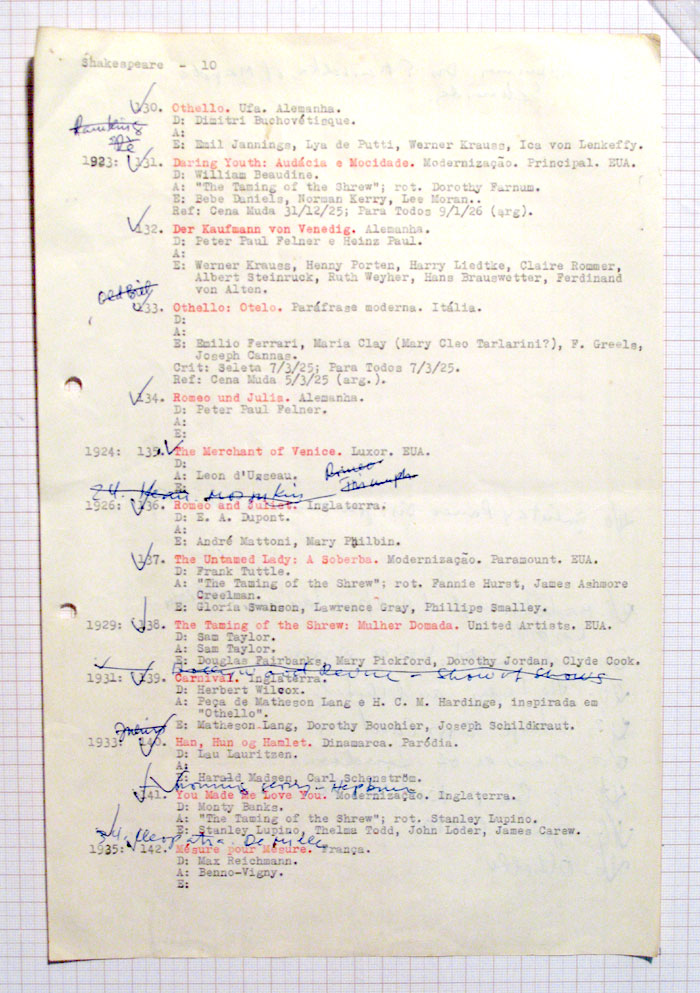 Shakespeare - 10
130. Othello. Ufa. Alemanha.
D: Dimitri Buchovétisque.
A:
E: Emil Jannings, Lya de Putti, Werner Krauss, Ica von Lenkeffy.
1923: 131. Daring Youth: Audácia e Mocidade. Modernização. Principal. EUA.
D: William Beaudine.
A: "The Taming of the Shrew"; rot. Dorothy Farnum.
E: Bebe Daniels, Norman Kerry, Lee Moran..
Ref: Cena Muda 31/12/25; Para Todos 9/1/26 (arg).
132. Der Kaufmann von Venedig. Alemanha.
D: Peter Paul Felner e Heinz Paul.
A:
E: Werner Krauss, Henny Porten, Harry Liedtke, Claire Rommer,
Albert Steinruck, Ruth Weyher, Hans Brauswetter, Ferdinand
von Alten.
133. Othello: Otelo. Paráfrase moderna. Itália.
D:
A:
E: Emilio Ferrari, Maria Clay (Mary Cleo Tarlarini?), F. Greels,
Joseph Cannas.
Crit: Seleta 7/3/25; Para Todos 7/3/25.
Ref: Cena Muda 5/3/25 (arg.).
134. Romeo und Julia. Alemanha.
D: Peter Paul Felner.
A:
E:
1924: 135. The Merchant of Venice. Luxor. EUA.
D:
A: Leon d'Usseau.
E:
Romeo
24.
1926: 136. Romeo and Juliet. Inglaterra.
D: E. A. Dupont.
A:
E: André Mattoni, Mary Philbin.
137. The Untamed Lady: A Soberba. Modernização. Paramount. EUA.
D: Frank Tuttle.
A: "The Taming of the Shrew"; rot. Fannie Hurst, James Ashmore
Creelman.
E: Gloria Swanson, Lawrence Gray, Phillips Smalley.
1929: 138. The Taming of the Shrew: Mulher Domada. United Artists. EUA.
D: Sam Taylor.
A: Sam Taylor.
E: Douglas Fairbanks, Mary Pickford, Dorothy Jordan, Clyde Cook.
Hollywood Revue - Show of Shows
1931: 139. Carnival. Inglaterra.
D: Herbert Wilcox.
A: Peça de Matheson Lang e H. C. M. Hardinge, inspirada em
"Othello".
E: Matheson Lang, Dorothy Bouchier, Joseph Schildkraut.
1933: 140. Han, Hun og Hamlet. Dinamarca. Paródia.
D: Lau Lauritzen.
A:
E: Harald Madsen, Carl Schenström.
Morning Glory - Hepburn
141. You Made Me Love You. Modernização. Inglaterra.
D: Monty Banks.
A: "The Taming of the Shrew"; rot. Stanley Lupino.
E: Stanley Lupino, Thelma Todd, John Loder, James Carew.
34. Cleopatra De Mille
1935: 142. Mesure pour Mesure. França.
D: Max Reichmann.
A: Benno-Vigny.
E: